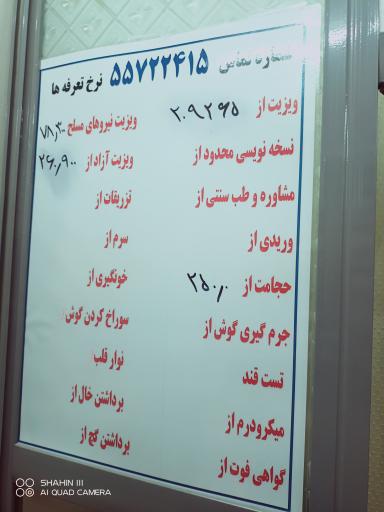 شماره تماس ۵۵۷۲۲۴۱۵ نرخ تعرفه ها
ویزیت از ۲۰۹۲۶۵
نسخه نویسی محدود از
مشاوره و طب سنتی از
وریدی از
حجامت از ۲۵۰,۰
جرم گیری گوش از
تست قند
میکرودرم از
گواهی فوت از
ویزیت نیروهای مسلح ۷۸,۳۰۰
ویزیت آزاد از ۲۶۰,۹۰۰
تزریقات از
سرم از
خونگیری از
سوراخ کردن گوش
نوار قلب
برداشتن خال از
برداشتن گچ از
SHAHIN III
AI QUAD CAMERA